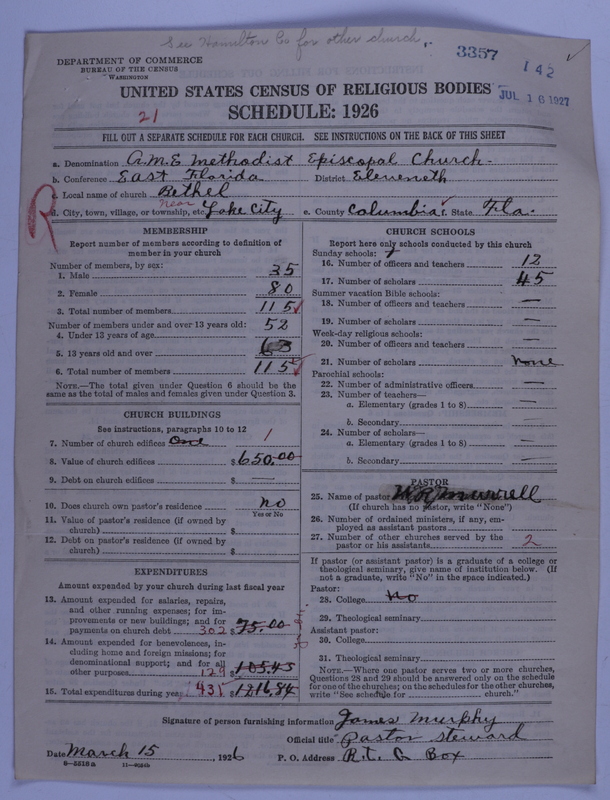 See Hamilton Co for other church
3357
142
DEPARTMENT OF COMMERCE
BUREAU OF THE CENSUS
WASHINGTON
UNITED STATES CENSUS OF RELIGIOUS BODIES
JUL 16 1927
21
SCHEDULE: 1926
FILL OUT A SEPARATE SCHEDULE FOR EACH CHURCH. SEE INSTRUCTIONS ON THE BACK OF THIS SHEET
a. Denomination A.M.E Methodist Episcopal Church
b. Conference East Florida District Eleveneth
c. Local name of church Bethel
d. City, town, village, or township, etc. near Lake City e. County Columbia f. State Fla.
MEMBERSHIP
Report number of members according to definition of
member in your church
Number of members, by sex:
1. Male 35
2. Female 80
3. Total number of members 115
Number of members under and over 13 years old:
4. Under 13 years of age 52
5. 13 years old and over 63
6. Total number of members 115
NOTE.—The total given under Question 6 should be the
same as the total of males and females given under Question 3.
CHURCH BUILDINGS
See instructions, paragraphs 10 to 12
7. Number of church edifices One 1
8. Value of church edifices $650.00
9. Debt on church edifices $ —
10. Does church own pastor's residence no
Yes or No
11. Value of pastor's residence (if owned by
church) $
12. Debt on pastor's residence (if owned by
church) $
EXPENDITURES
Amount expended by your church during last fiscal year
13. Amount expended for salaries, repairs,
and other running expenses; for im-
provements or new buildings; and for
payments on church debt 302 $75.00
14. Amount expended for benevolences, in-
cluding home and foreign missions; for
denominational support; and for all
other purposes 129 $105.45
15. Total expenditures during year 431 $1216.84
CHURCH SCHOOLS
Report here only schools conducted by this church
Sunday schools: 1
16. Number of officers and teachers 12
17. Number of scholars 45
Summer vacation Bible schools:
18. Number of officers and teachers —
19. Number of scholars —
Week-day religious schools:
20. Number of officers and teachers —
21. Number of scholars none
Parochial schools:
22. Number of administrative officers —
23. Number of teachers—
a. Elementary (grades 1 to 8) —
b. Secondary —
24. Number of scholars—
a. Elementary (grades 1 to 8) —
b. Secondary —
PASTOR
25. Name of pastor W.R.
(If church has no pastor, write "None")
26. Number of ordained ministers, if any, em-
ployed as assistant pastors
27. Number of other churches served by the
pastor or his assistants 2
If pastor (or assistant pastor) is a graduate of a college or
theological seminary, give name of institution below. (If
not a graduate, write "No" in the space indicated.)
Pastor:
28. College No
29. Theological seminary
Assistant pastor:
30. College
31. Theological seminary
NOTE.—Where one pastor serves two or more churches,
Questions 28 and 29 should be answered only on the schedule
for one of the churches; on the schedules for the other churches,
write "See schedule for church."
Signature of person furnishing information James Murphy
Official title Pastor Steward
Date March 15, 1926 P. O. Address R.t. C Box